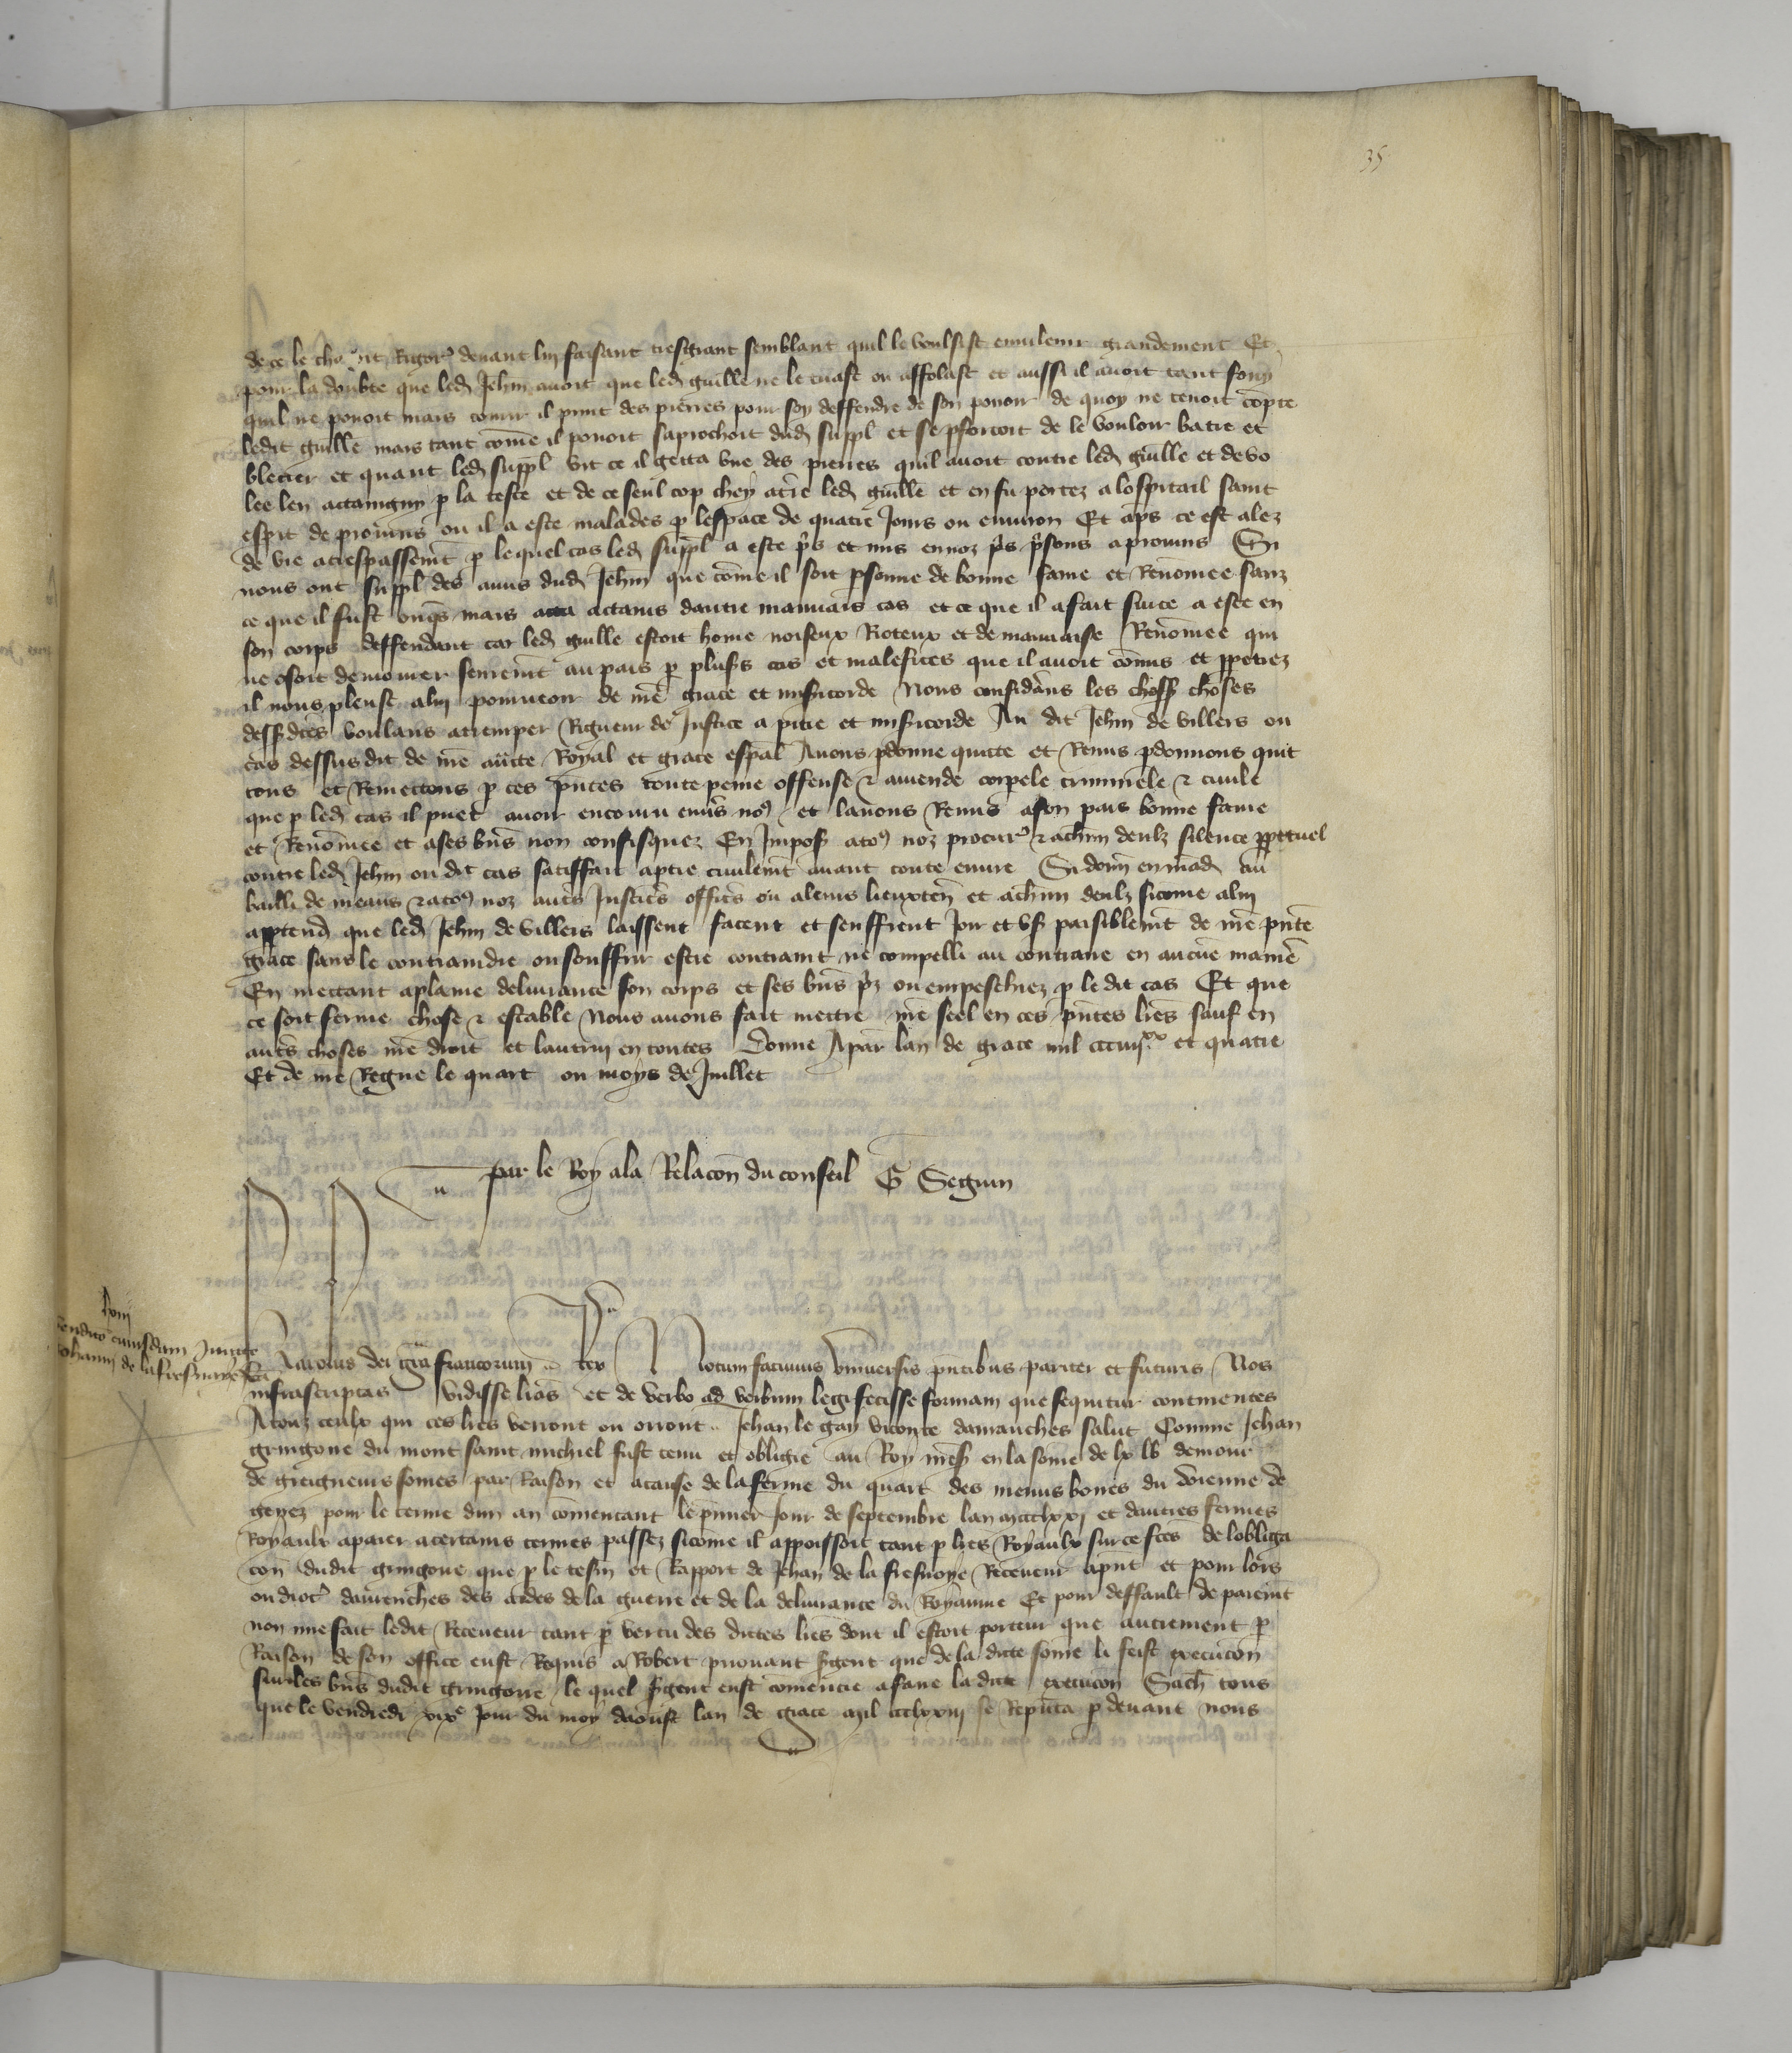 35
de ce le cho nt Rigor devant lui faisant tresgrant semblant quil le voulsist grandement Et
pour la doubte que led Jehan avoit que led guille ne le tuast ou affolast et aussi il avoit tant fouy
quil ne povoit mais courir il print des pierres pour soy deffendre de son povoir de quoy ne tenoit compte
ledit guille mais tant come il povoit saprochoit dud suppl et se pforcoit de le vouloir batre et
blecier et quant led suppl vit ce il getta une des pierres quil avoit contre led guille et de vo
lee len attaingny p la teste et de ce seul cop chey a tre led guille et en fu portez a lospitail saint
esprit de provins ou il a este malades p lespace de quatre Jours ou environ Et aps ce est alez
de vie a trespassement p lequel cas led suppl a este pris et mis en noz psons a provins Si
nous ont suppl des amis dud Jehan que come il soit psonne de bonne fame et Renomee sanz
ce que il fust onqs mais attains dautre mauvais cas et ce que il a fait sur ce a este en
son corps deffendant car led guille estoit home noiseux Rioteux et de mauvaise Renomee qui
ne osoit demourer seurement au pais p plusrs cas et malefices que il avoit comis et ppetrez
il nous pleust a lui pourveoir de nre grace et misericorde Nous considerans les choses
dessdtes voulans attremper Rigueur de Justice a pitie et misericorde Au dit Jehan de villers ou
cas dessus dit de nre aucte Royal et grace espal Avons pdonne quitte et Remis pdonnons quit
tons et Remettons p ces pntes toute peine offense & amende corpele criminele & civile
que p led cas il puet avoir encouru envrs nos et lavons Remis a son pais bonne fame
et Renomee et a ses bns non confisquez En Impost a tos noz procurs & a chun deulz silence ppetuel
contre led Jehan ou dit cas satiffait a ptie civilemt avant toute euvre Si donns en mad au
bailli de meaus & a tos noz autrs Justicrs officrs ou a leurs lieuxten et a chun deulz sicome a lui
apptend que led Jehan de villers laissent facent et seuffrent Joir et us paisiblemt de nre pnte
grace sans le contraindre ou souffrir estre contraint ne compelli au contraire en aucune maniere
En mettant a plaine delivrance son corps et ses bns prz ou empeschiez p le dit cas Et que
ce soit ferme chose & estable Nous avons fait mettre nre seel en ces pntes lres sauf en
autrs choses nre droit et lautrui en toutes Donne A par lan de grace mil ccciiijxx et quatre
Et de nre Regne le quart ou moys de Juillet
par le Roy a la Relacon du conseil G Seguin
Karolus dei gra francorum Rex Notum facimus Universis pntibus pariter et futuris Nos
infrascriptas vidisse lras et de verbo ad verbum legi fecisse formam que sequitur continentes
A touz ceulx qui ces lres verront ou orront Jehan le gay viconte davranches salut Comme Jehan
gringore du mont saint michiel fust tenu et obligie au Roy nres en la some de lx lb demour
de greigneurs somes par Raison et a cause de la ferme du quart des menus bores du doienne de
genez pour le terme dun an comencant le pmier Jour de septembre lan mccclxxj et dautres fermes
Royaulx a paier a certains termes passez sicome il apparissoit tant p lres Royaulx sur ce fctes de lobliga
con dudit gringore que p le tesm et Rapport de Jehan de la fresnoye Receveur a pnt et pour lors
ou dioc davrenches des aides de la guerre et de la delivrance du Royaume Et pour deffault de paiemt
non mie fait ledit Receveur tant p vertu des dictes lres dont il estoit porteur que autrement p
Raison de son office eust Requis a Robert sgent que de la dicte some li feist execucon
sur les bns dudit gringore le quel sgent eust comencie a faire la dicte execucon Sach tous
que le vendredi xixe Jour du moys daoust lan de grace mil ccclxxiij se Repnta p devant nous
venditio cuiusdam
Johanni de la fresnaye